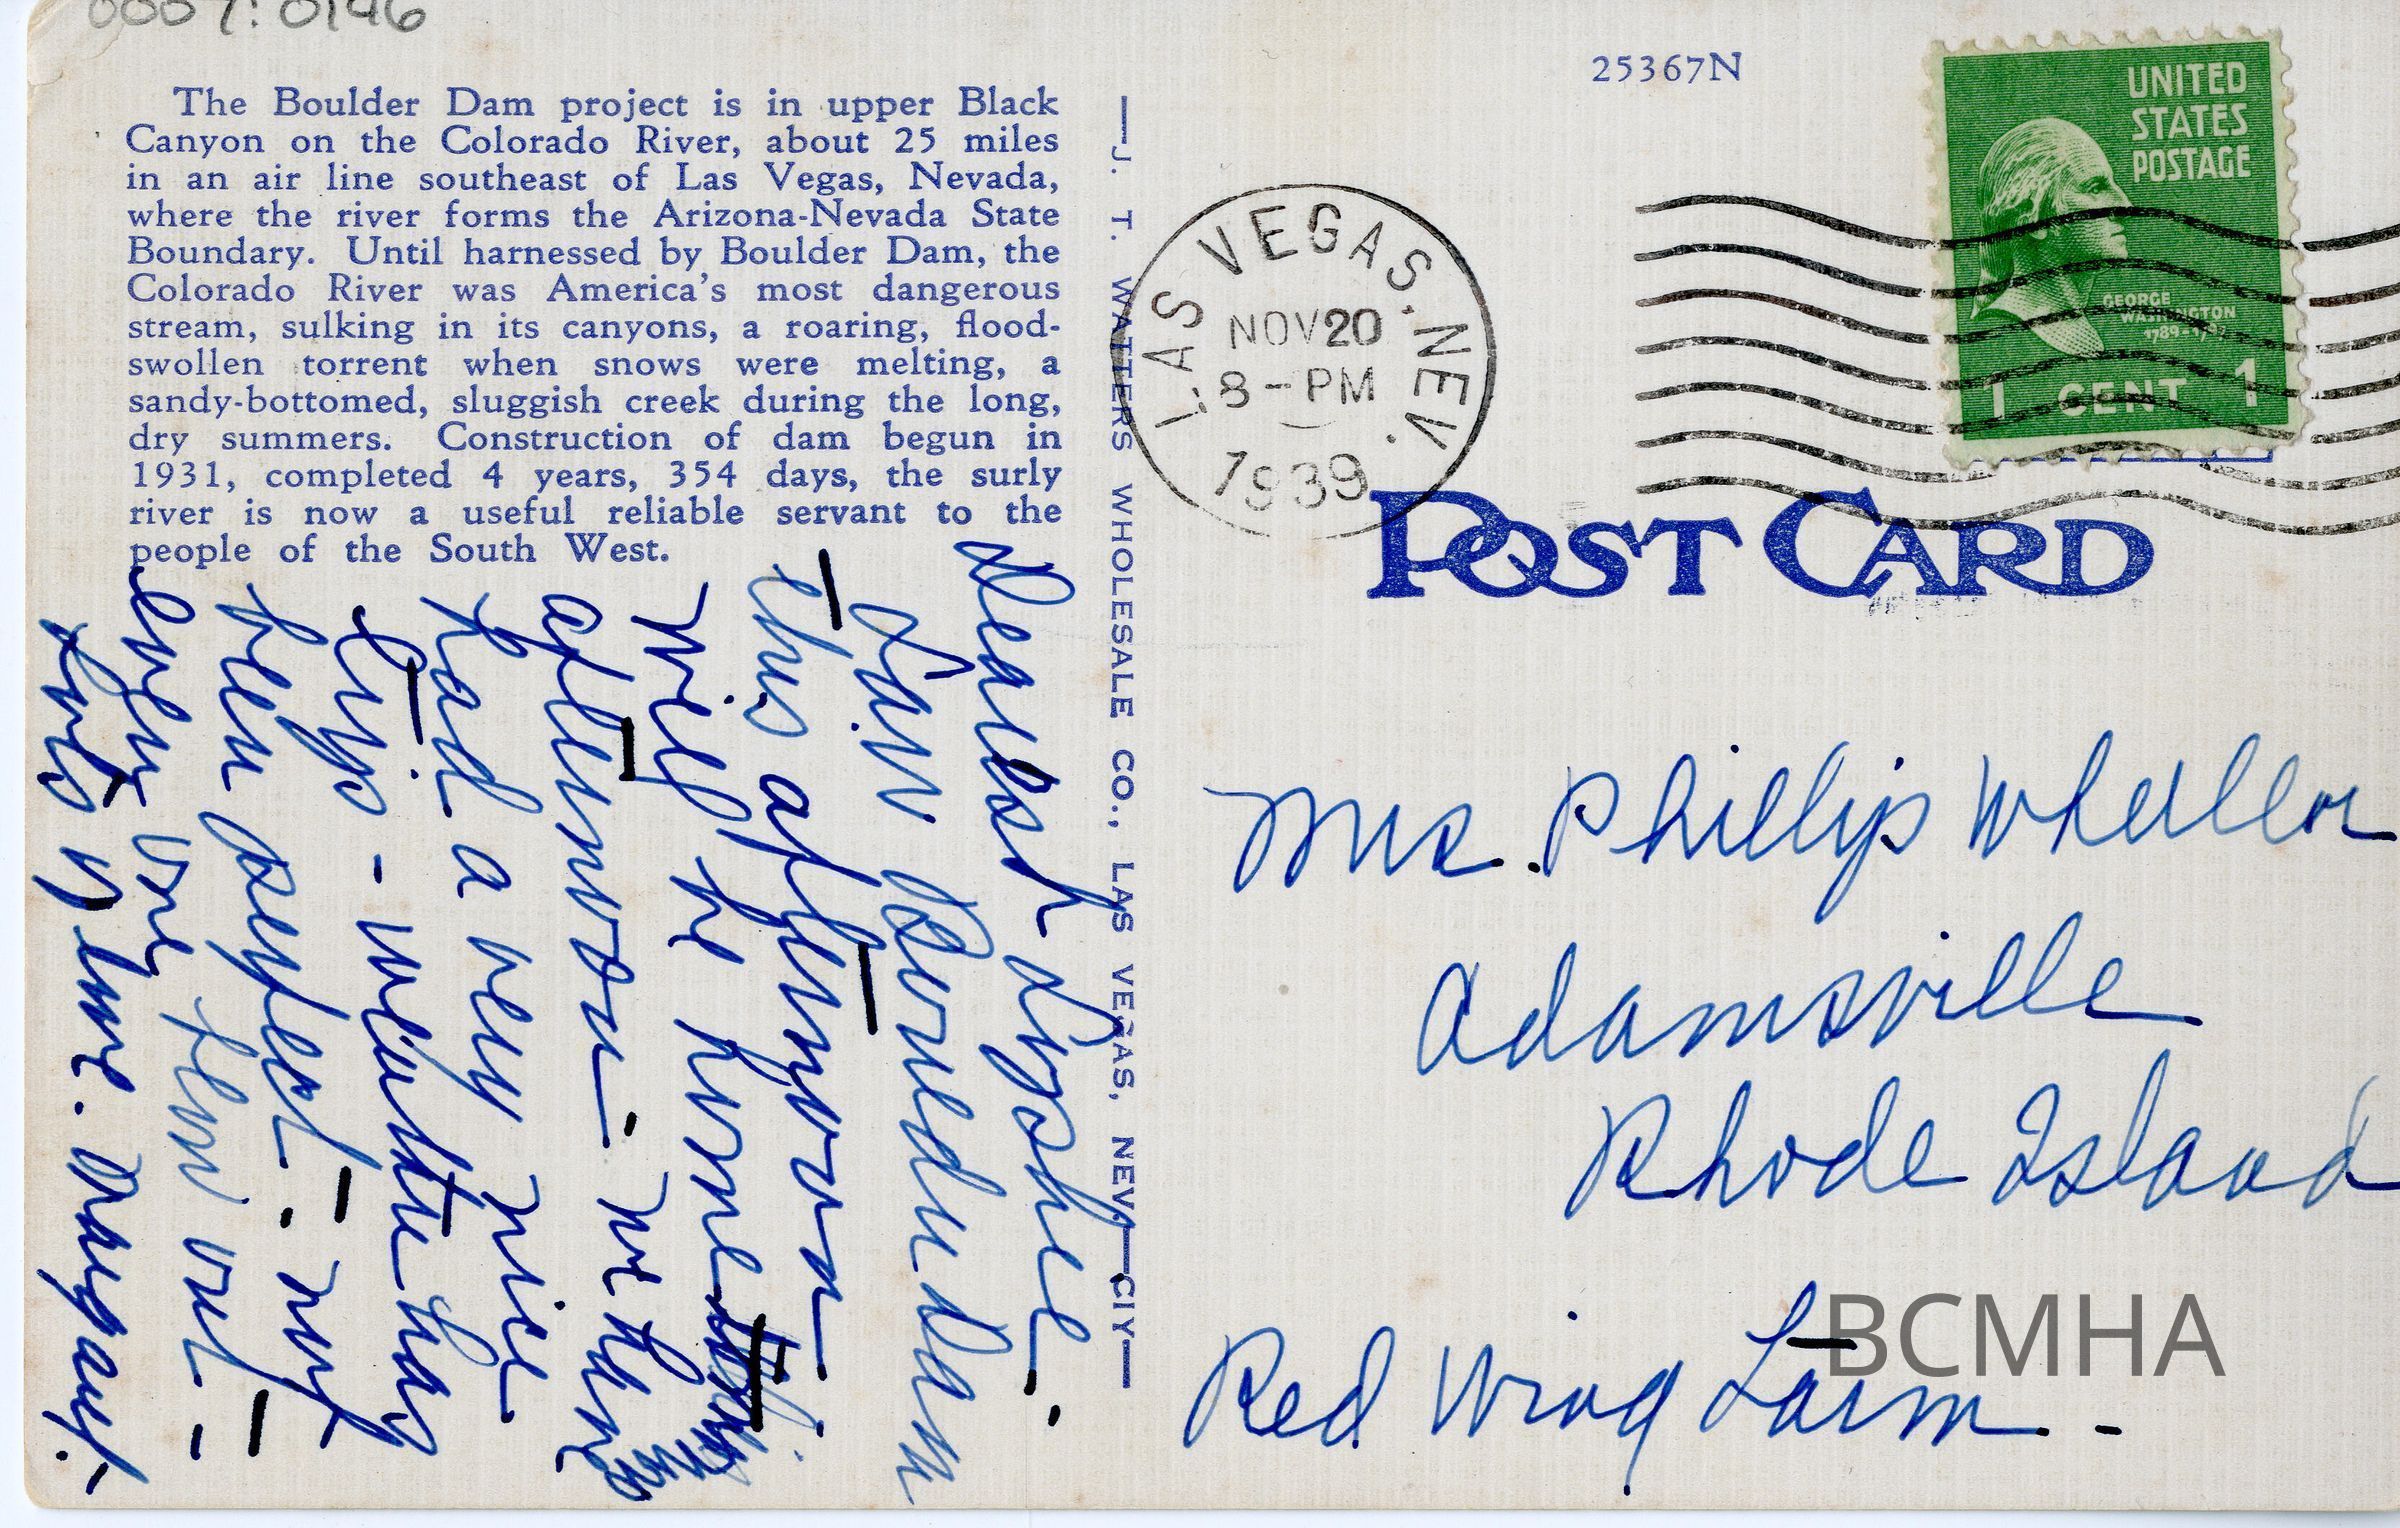 0007.0146
The Boulder Dam project is in upper Black
Canyon on the Colorado River, about 25 miles
in an air line southeast of Las Vegas, Nevada,
where the river forms the Arizona-Nevada State
Boundary. Until harnessed by Boulder Dam, the
Colorado River was America's most dangerous
stream, sulking in its canyons, a roaring, flood-
swollen torrent when snows were melting, a
sandy-bottomed, sluggish creek during the long,
dry summers. Construction of dam begun in
1931, completed 4 years, 354 days, the surly
river is now a useful reliable servant to the
people of the South West.
Dearest
Saw Boulder Dam
this afternoon
Will be home
afternoon. We have
had a very nice
trip - weather has
been perfect. My
even we
lots of love. Margaret.
—J. T. WATTERS WHOLESALE CO., LAS VEGAS, NEV.—CIY—
25367N
UNITED
STATES
POSTAGE
GEORGE
WASHINGTON
1789-1797
1 CENT 1
LAS VEGAS. NEV.
NOV 20
8-PM
1939
POST CARD
Mrs. Phillip Wheeler
Adamsville
Rhode Island
Red Wing Farm.-
BCMHA